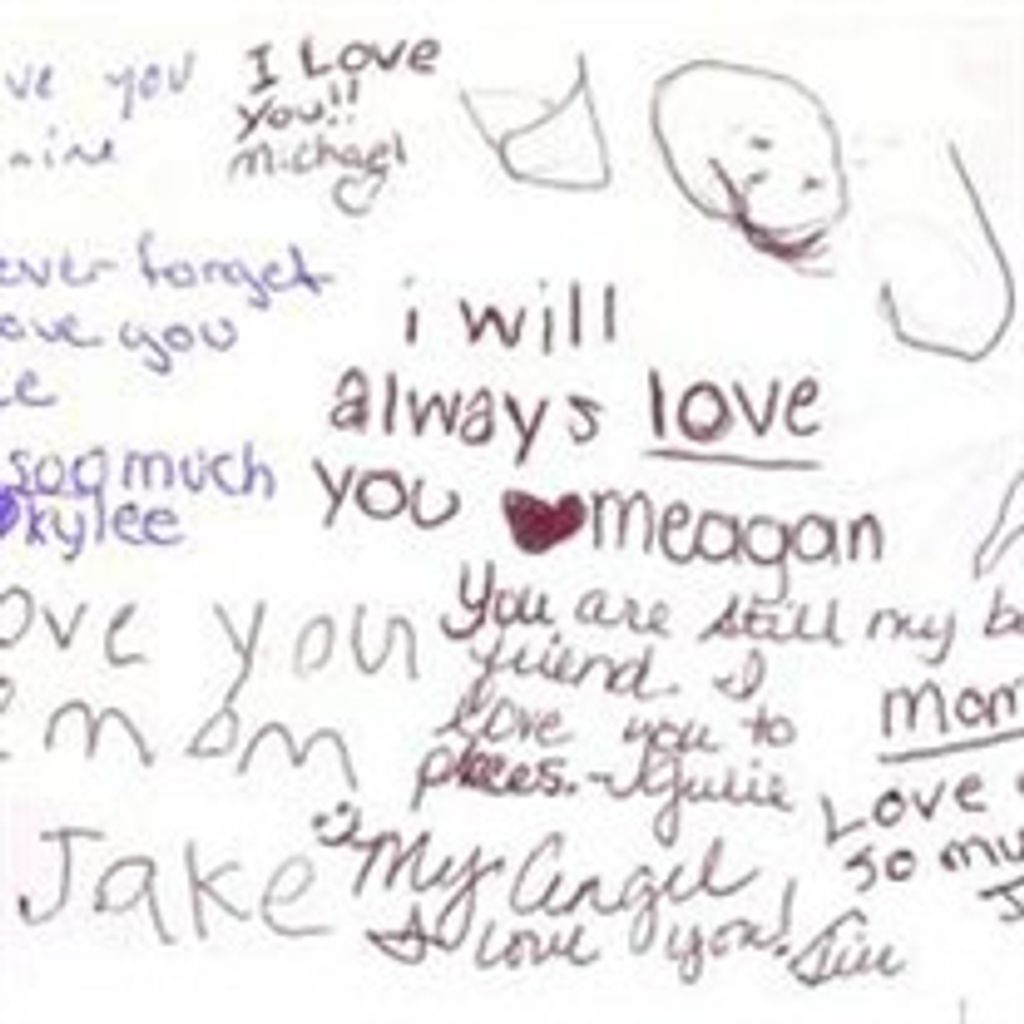 ve you
I Love
You!!
Michael
ever forget
ove you
i will
always love
you ♥meagan
soo much
kylee
ove you
mom
Jake
You are still my be
friend. I
love you to
pieces. - Julie
mom
Love
so mu
J
My Angel
I love you!